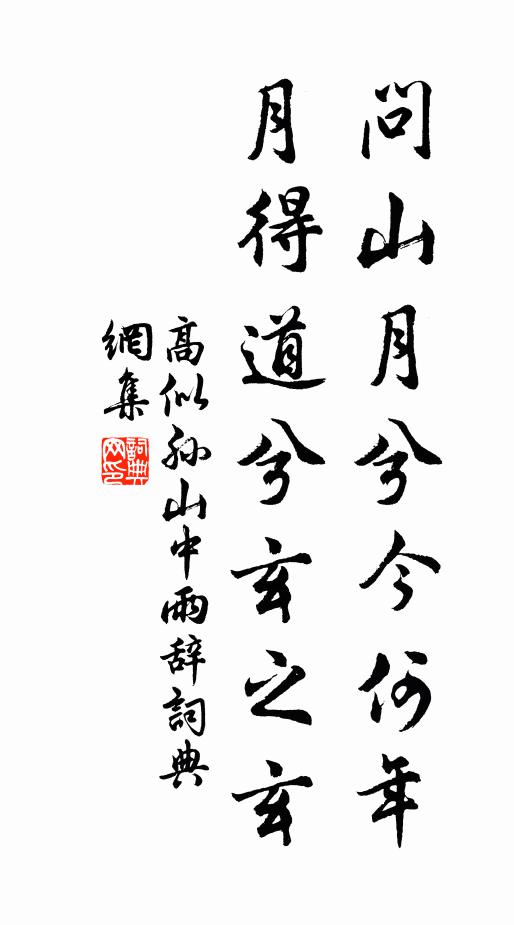 問山月兮今何年
月得道兮玄之玄
高似孫山中雨辞詞典
網集
詞典網印